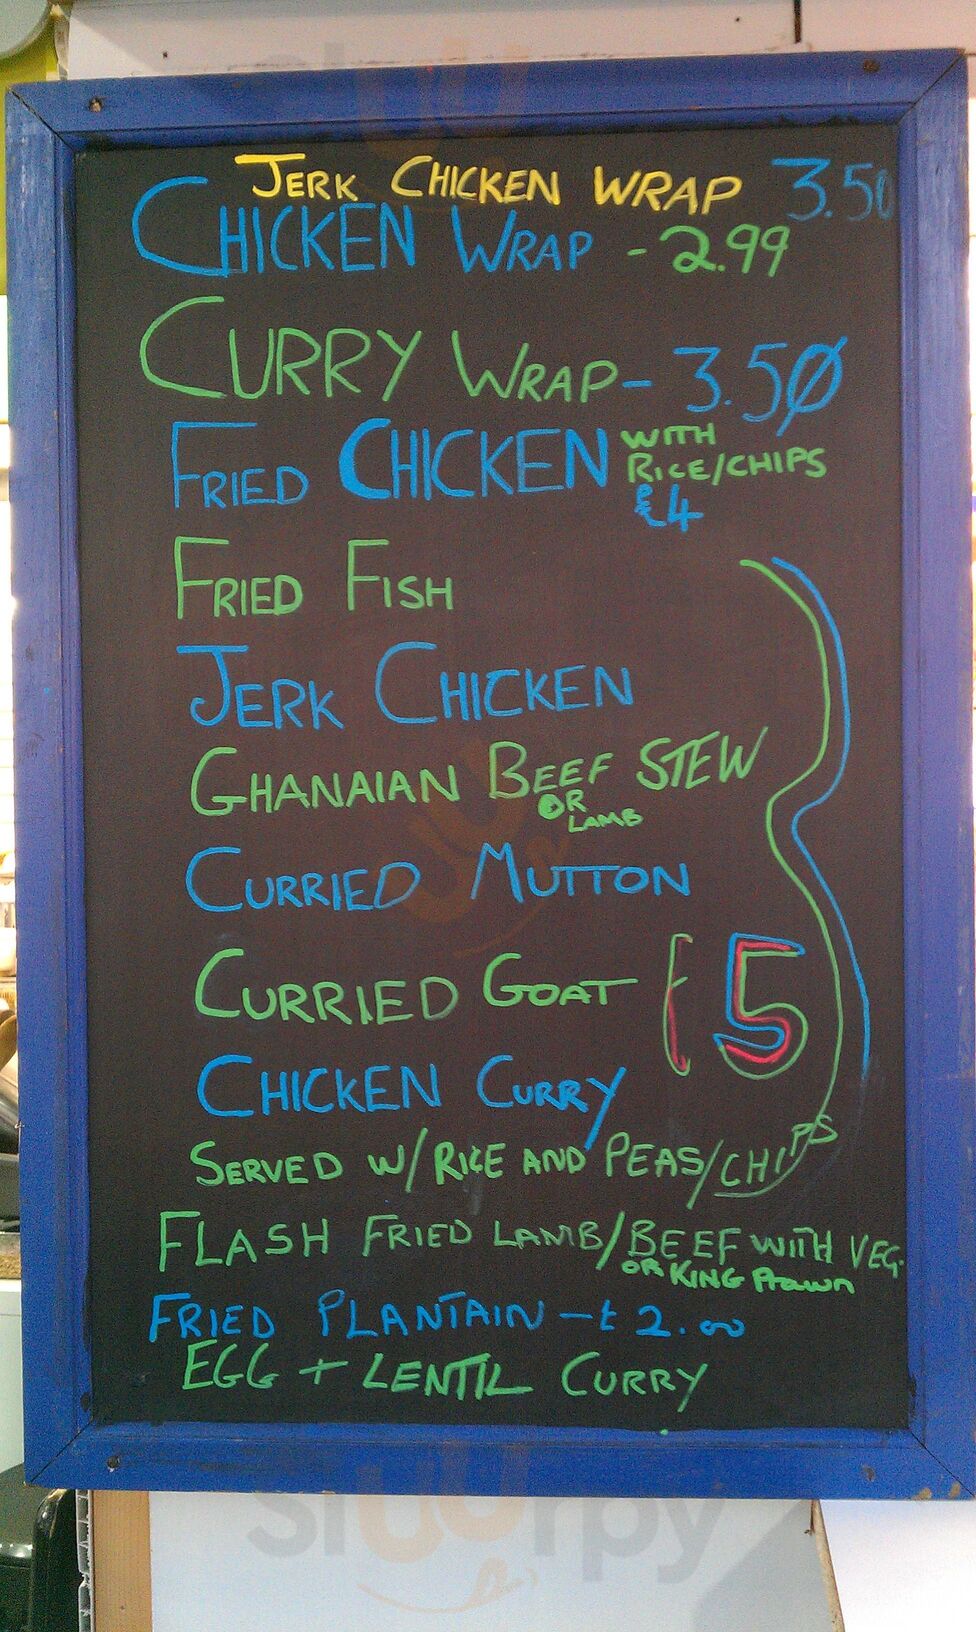 JERK CHICKEN WRAP 3.50
CHICKEN WRAP - 2.99
CURRY WRAP - 3.50
FRIED CHICKEN WITH RICE/CHIPS £4
FRIED FISH
JERK CHICKEN
GHANAIAN BEEF STEW
OR LAMB
CURRIED MUTTON
CURRIED GOAT £5
CHICKEN CURRY
SERVED W/ RICE AND PEAS/CHIPS
FLASH FRIED LAMB/BEEF WITH VEG.
OR KING Prawn
FRIED PLANTAIN - £2.00
EGG + LENTIL CURRY
sluurpy